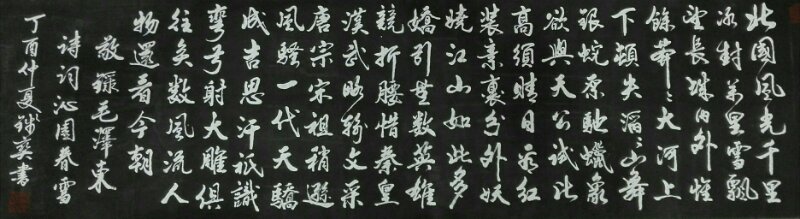 北國風光千里
冰封萬里雪飄
望長城內外惟
餘莽〻大河上
下頓失滔〻山舞
銀蛇原馳蠟象
欲與天公試比
高須晴日看紅
裝素裹分外妖
嬈江山如此多
嬌引無數英雄
競折腰惜秦皇
漢武略輸文采
唐宗宋祖稍遜
風騷一代天驕
成吉思汗祇識
彎弓射大雕俱
往矣數風流人
物還看今朝
敬錄毛澤東
詩詞沁園春雪
丁酉仲夏書